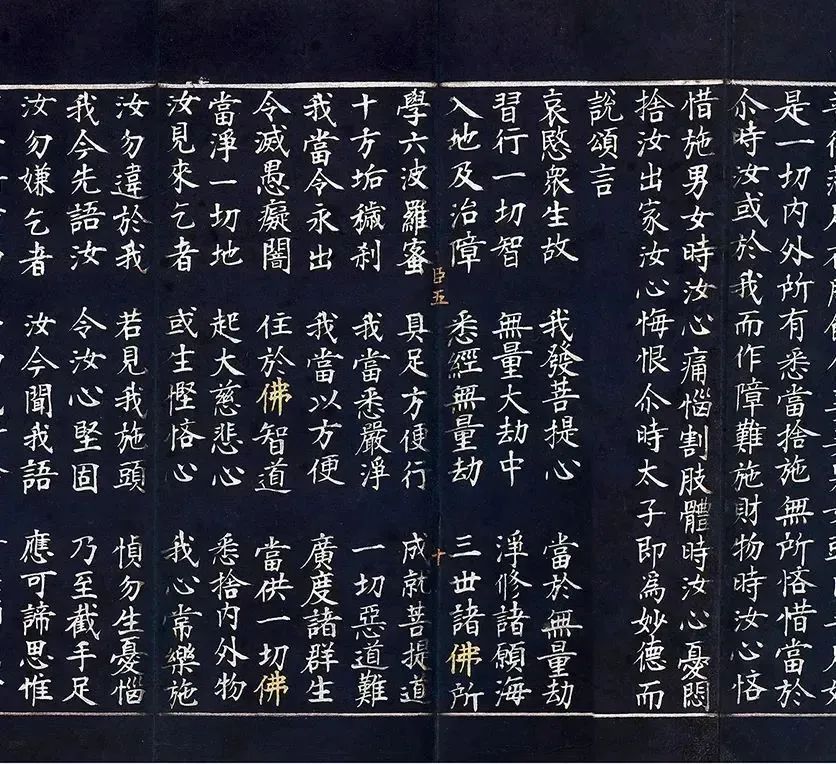 是一切內外所有悉當捨施無所悋惜當於
尒時汝或於我而作障難施財物時汝心悋
惜施男女時汝心痛惱割肢體時汝心憂悶
捨汝出家汝心悔恨尒時太子即為妙德而
說頌言
哀愍衆生故 我發菩提心 當於無量劫
習行一切智 無量大劫中 淨修諸願海
入地及治障 悉經無量劫 三世諸佛所
臣五 十
學六波羅蜜 具足方便行 成就菩提道
十方垢穢剎 我當悉嚴淨 一切惡道難
我當令永出 我當以方便 廣度諸群生
令滅愚癡闇 住於佛智道 當供一切佛
當淨一切地 起大慈悲心 悉捨內外物
汝見來乞者 或生慳悋心 我心常樂施
汝勿違於我 若見我施頭 慎勿生憂惱
我今先語汝 令汝心堅固 乃至截手足
汝勿嫌乞者 汝今聞我語 應可諦思惟